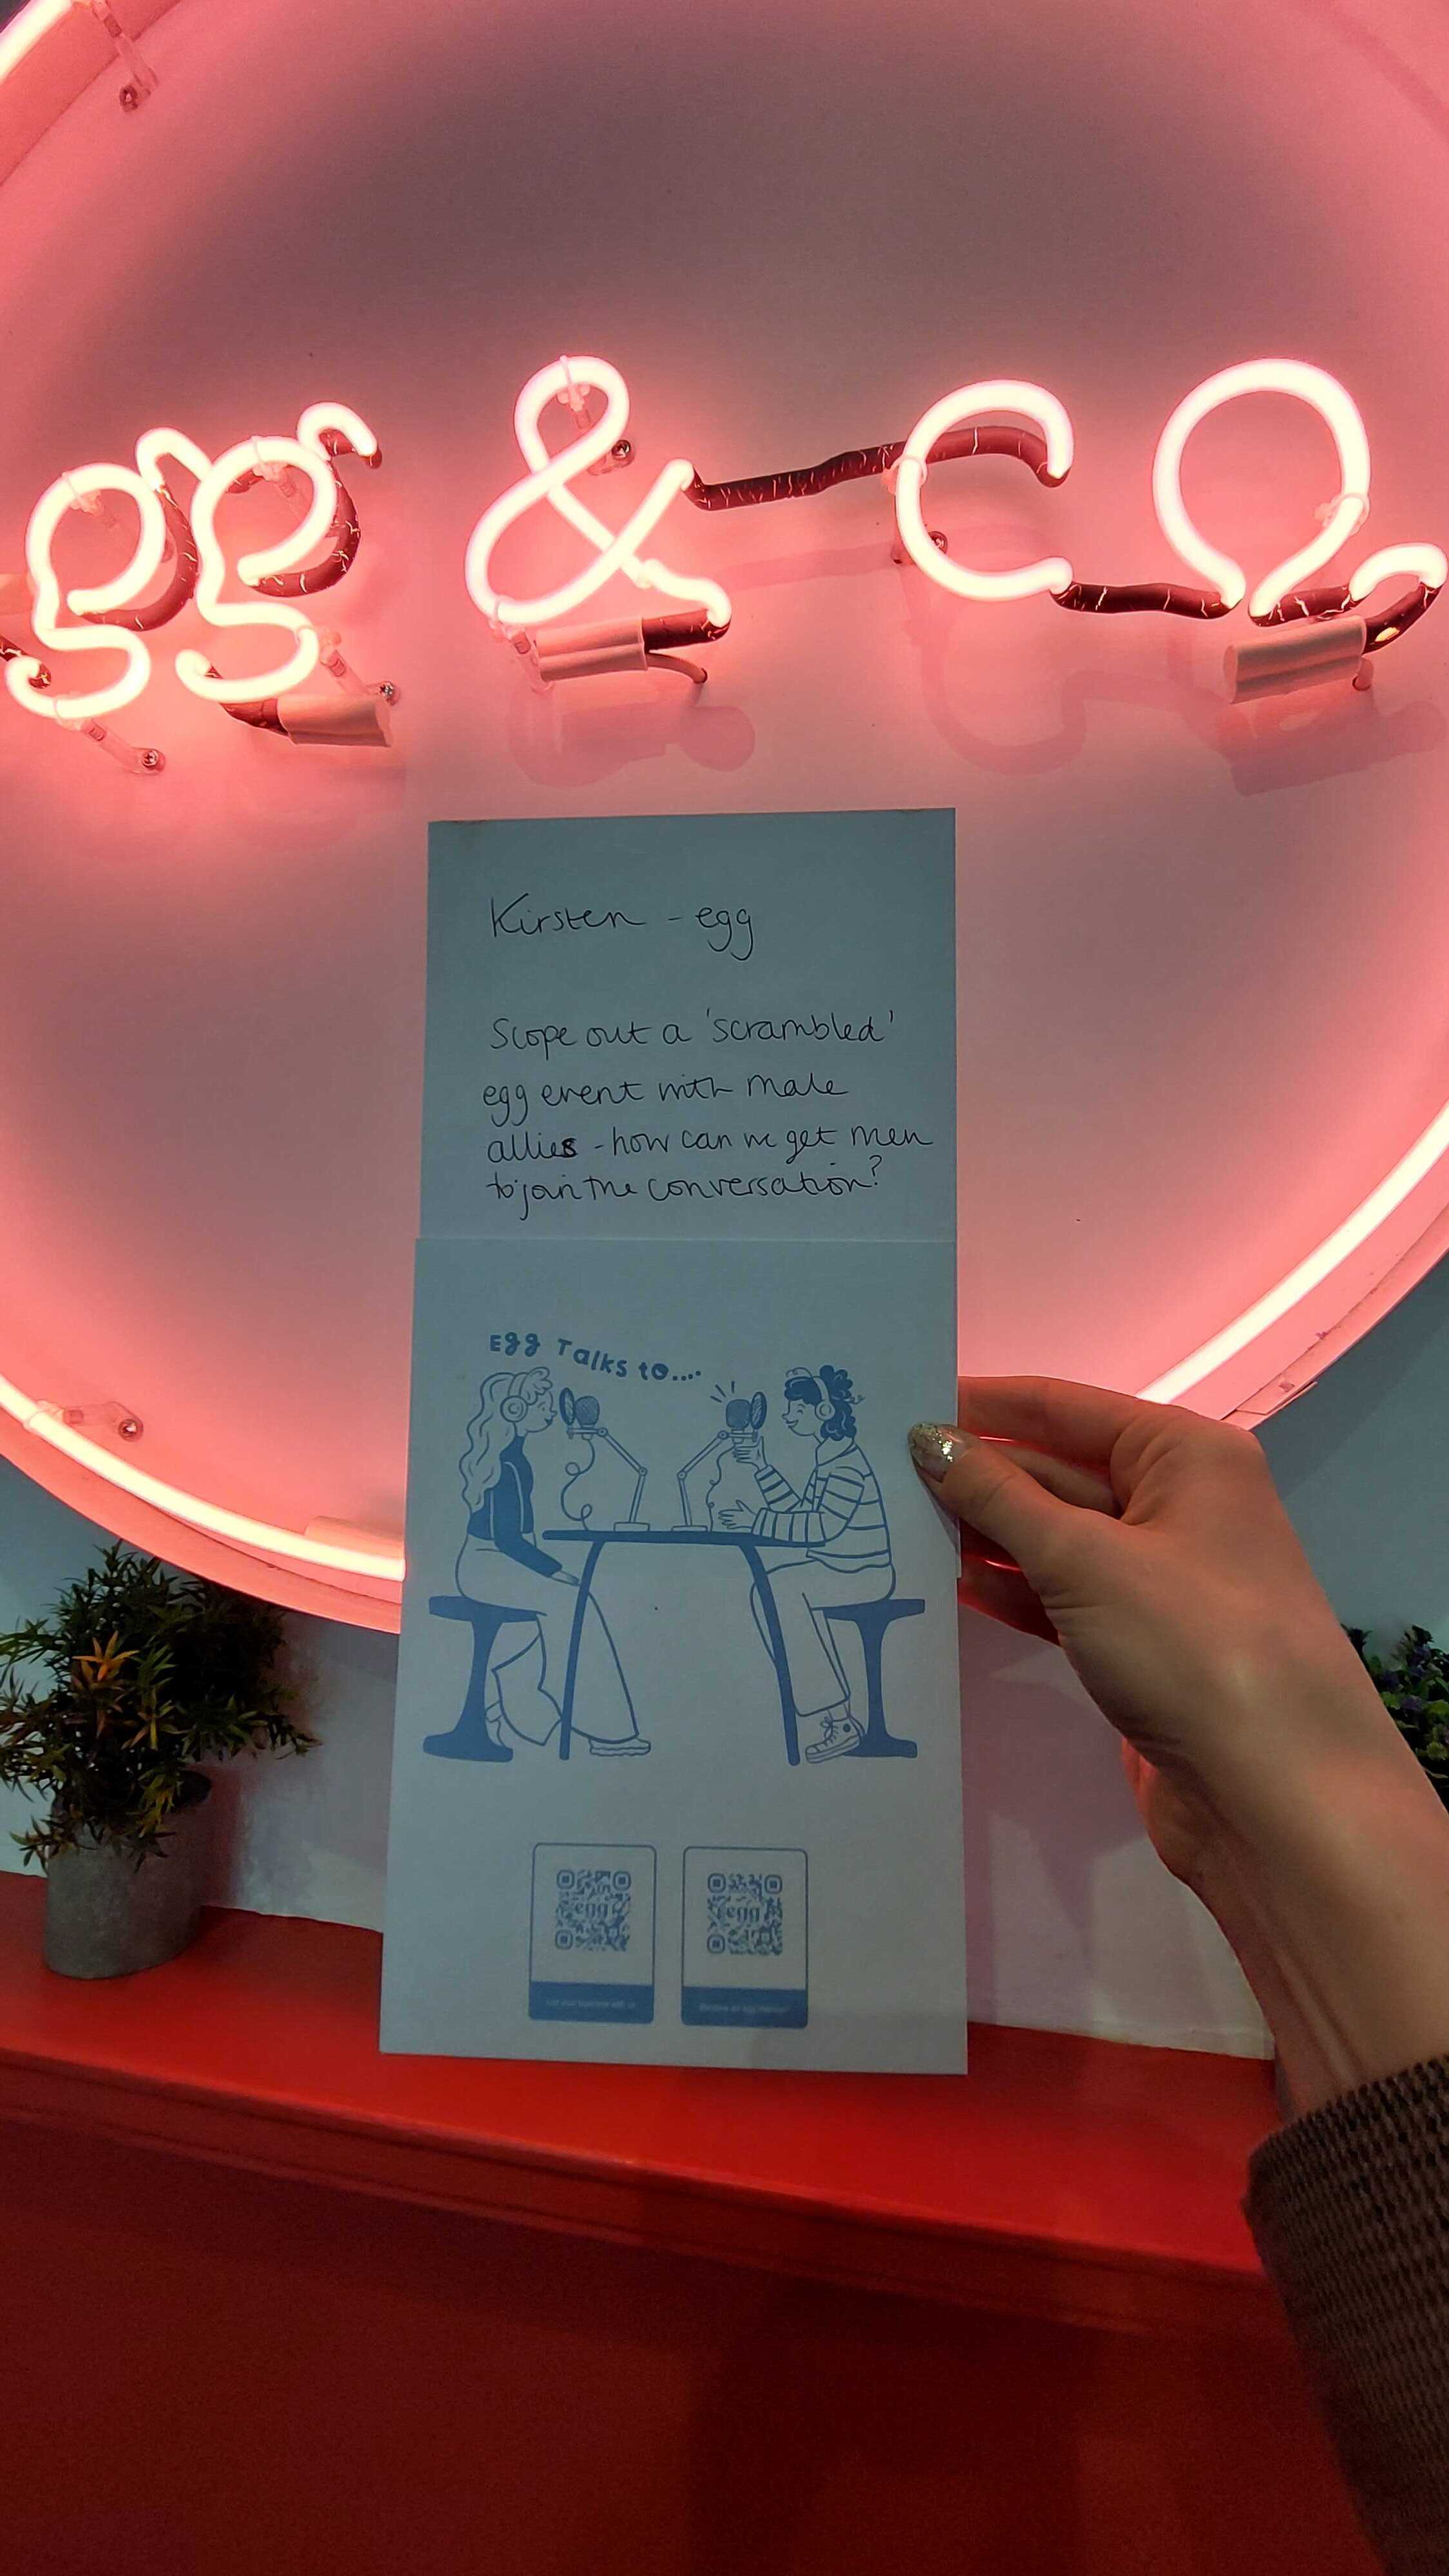 gg & co.
Kirsten - egg
Scope out a 'scrambled'
egg event with male
allies - how can we get men
to join the conversation?
Egg Talks to....
egg
egg